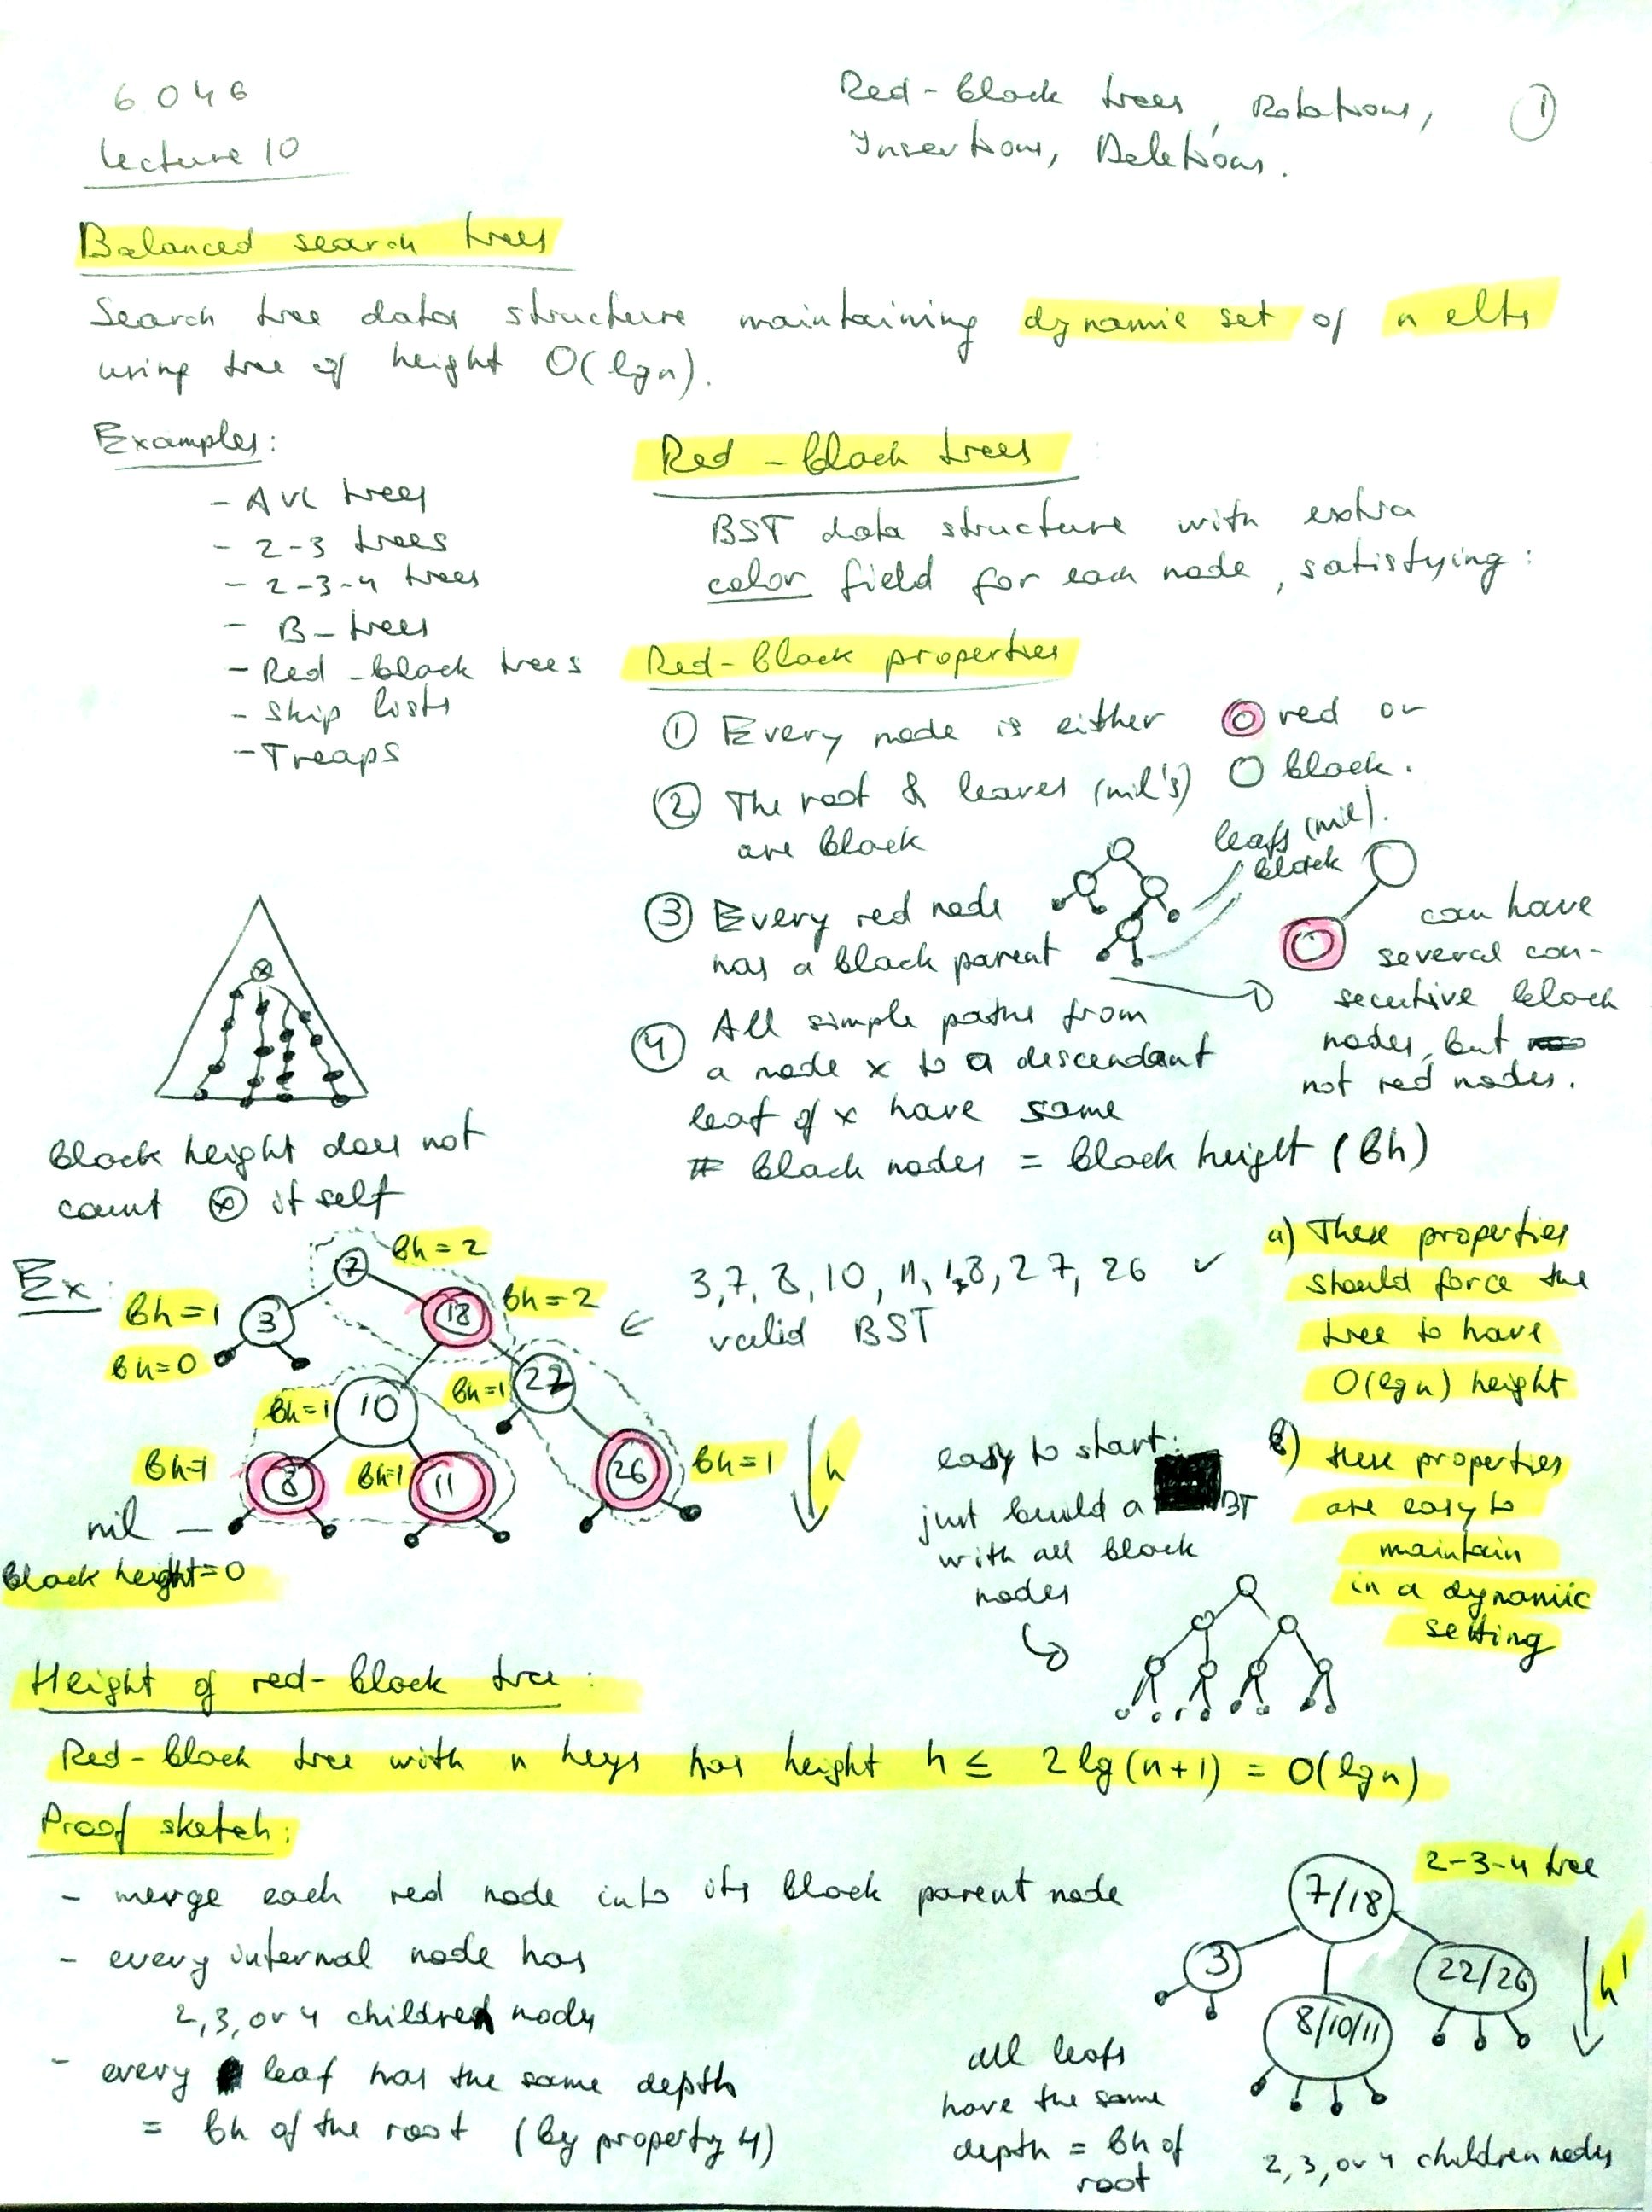 6.046
Lecture 10
Red-black trees, Rotations,
Insertions, Deletions.
①
Balanced search trees
Search tree data structure maintaining dynamic set of n elts
using tree of height O(lg n).
Examples:
- AVL trees
- 2-3 trees
- 2-3-4 trees
- B-trees
- Red-black trees
- Skip lists
- Treaps
Red-black trees
BST data structure with extra
color field for each node, satisfying:
Red-black properties
① Every node is either red or
black.
② The root & leaves (nil's)
are black
leafs (nil).
black
③ Every red node
has a black parent
can have
several con-
secutive black
nodes, but
not red nodes.
④ All simple paths from
a node x to a descendant
leaf of x have same
# black nodes = black height (bh)
x
black height does not
count ⓧ itself
Ex:
7 bh=2
bh=1 3
18 bh=2
bh=0
bh=1 10
bh=1 22
bh=1 8
bh=1 11
26 bh=1
h
nil —
black height=0
3, 7, 8, 10, 11, 18, 27, 26 ✓
← valid BST
a) These properties
should force the
tree to have
O(lg n) height
b) these properties
are easy to
maintain
in a dynamic
setting
easy to start:
just build a BT
with all black
nodes
Height of red-black tree:
Red-black tree with n keys has height h ≤ 2 lg(n+1) = O(lg n)
Proof sketch:
- merge each red node into its black parent node
- every internal node has
2, 3, or 4 children nodes
- every leaf has the same depth
= bh of the root (by property 4)
2-3-4 tree
7/18
3
22/26
8/10/11
h'
all leafs
have the same
depth = bh of
root
2, 3, or 4 children nodes